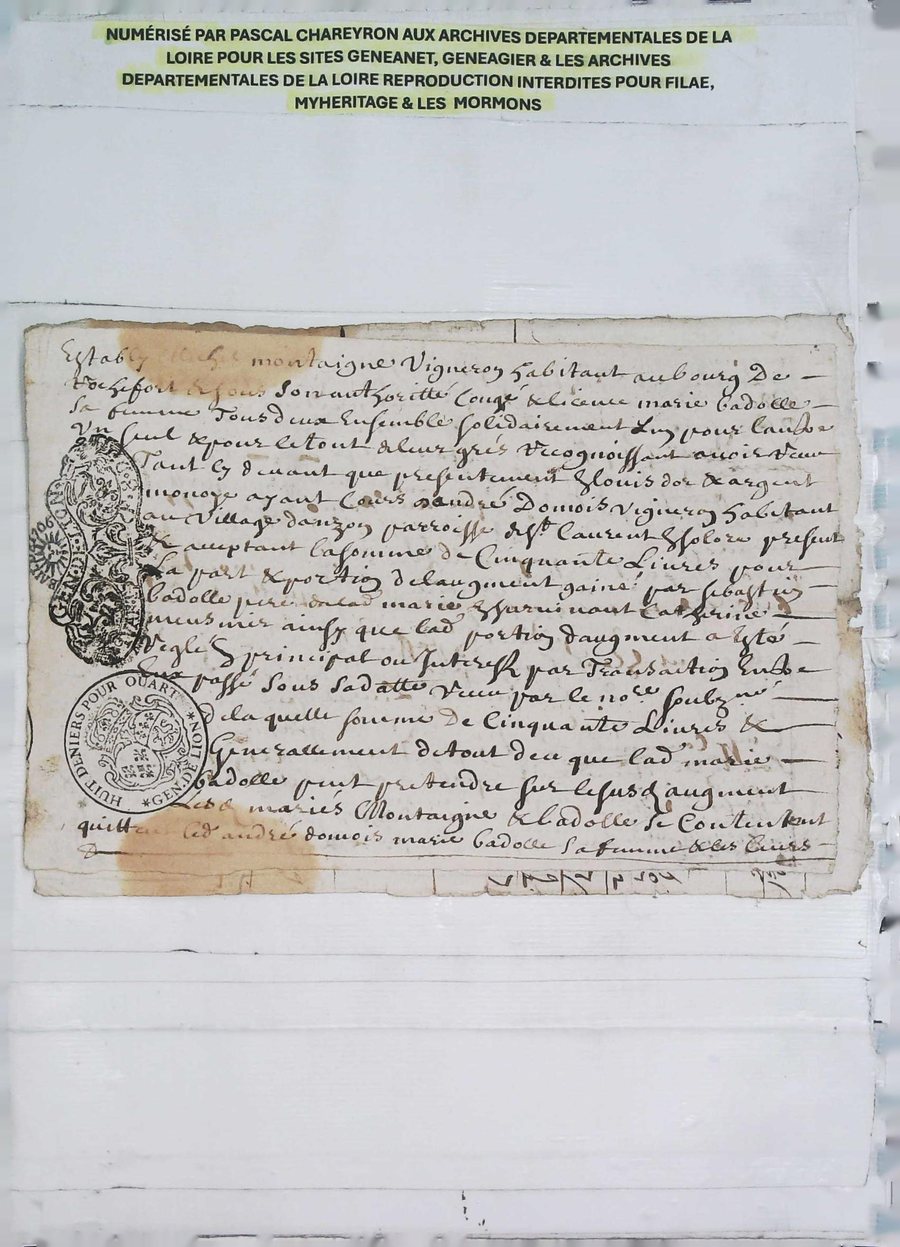 NUMÉRISÉ PAR PASCAL CHAREYRON AUX ARCHIVES DEPARTEMENTALES DE LA
LOIRE POUR LES SITES GENEANET, GENEAGIER & LES ARCHIVES
DEPARTEMENTALES DE LA LOIRE REPRODUCTION INTERDITES POUR FILAE,
MYHERITAGE & LES MORMONS
Estably montaigne Vigneron habitant au bourg De
Rochefort & sous Son authoritté Congé & licence marie badolle
Sa femme Tous deux Ensemble solidairement Lun pour lautre
Un seul & pour le tout & de leur grés Recognoissant avoir Receu
Tant Cy devant que presentement En louis dor & argent
monoye ayant Cours dandré Domois Vigneron habitant
au Village danzon parroisse de St laurent present
& aceptant la somme de Cinquante Livres pour
La part & portion de laugment gaine par Sebastien
badolle pere a lad marie Catherine
ainsy que lad portion daugment a Esté
Reglé En principal ou Interest par Transaction Entre
Eux passé Sous Sa datte Receu par le nore soubzné
de laquelle somme de Cinquante Livres &
Generallement de tout ce que lad marie
badolle peut pretendre sur le susd augment
Lesd mariés Montaigne & badolle Se Contentent
quittent led andré domois marie badolle Sa femme & les leurs
GEN. DE LYON
HUIT DENIERS POUR QUART * GEN. DE LION *